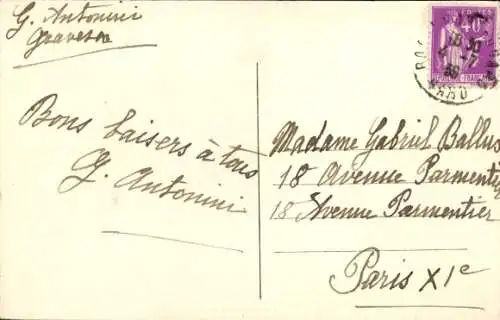 G. Antonini
Graveson
Bons baisers à tous
G. Antonini
Madame Gabriel Ballus
18 Avenue Parmentier
18 Avenue Parmentier
Paris XIe
40c